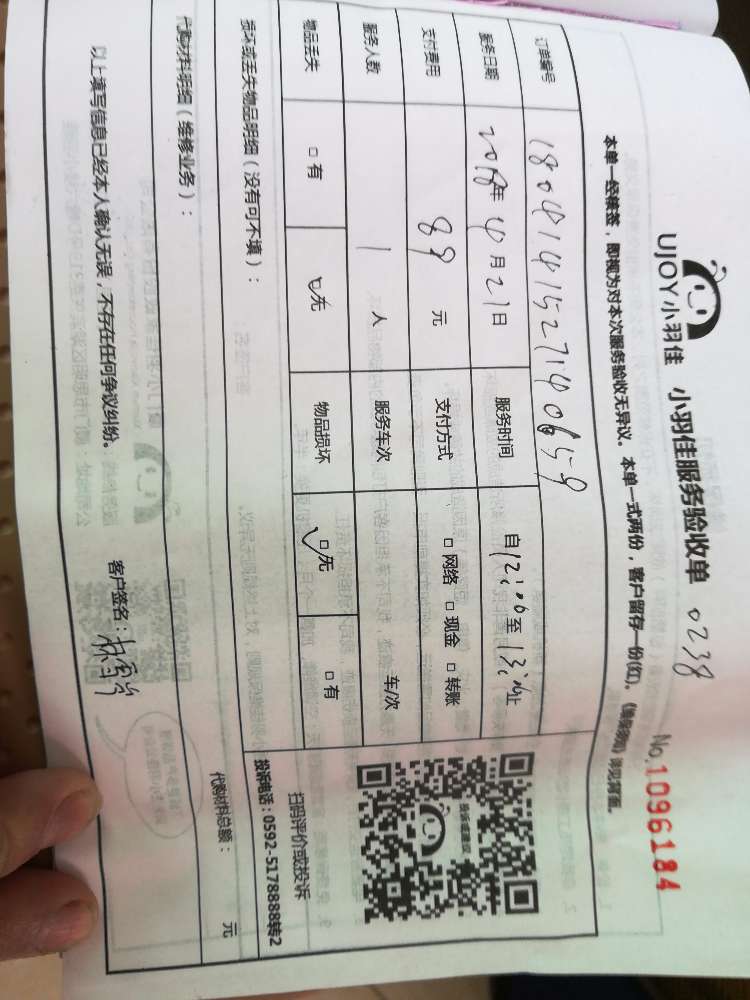 UJOY小羽佳 小羽佳服务验收单 0238 No.1096184
本单一经签签，即视为对本次服务验收无异议。本单一式两份，客户留存一份(红)。《维修须知》详见背面。
订单编号 1804141527140659
服务日期 2018年4月21日 服务时间 自12:00至13:00止
支付费用 89元 支付方式 □网络 □现金 □转账
服务人数 1人 服务车次 车/次
物品丢失 □有 □无 物品损坏 □无 □有
投诉或建议
扫码评价或投诉
投诉电话：0592-5178888转2
损坏或丢失物品明细（没有可不填）：
代购材料明细（维修业务）： 代购材料总额： 元
以上填写信息已经本人确认无误，不存在任何争议纠纷。 客户签名：